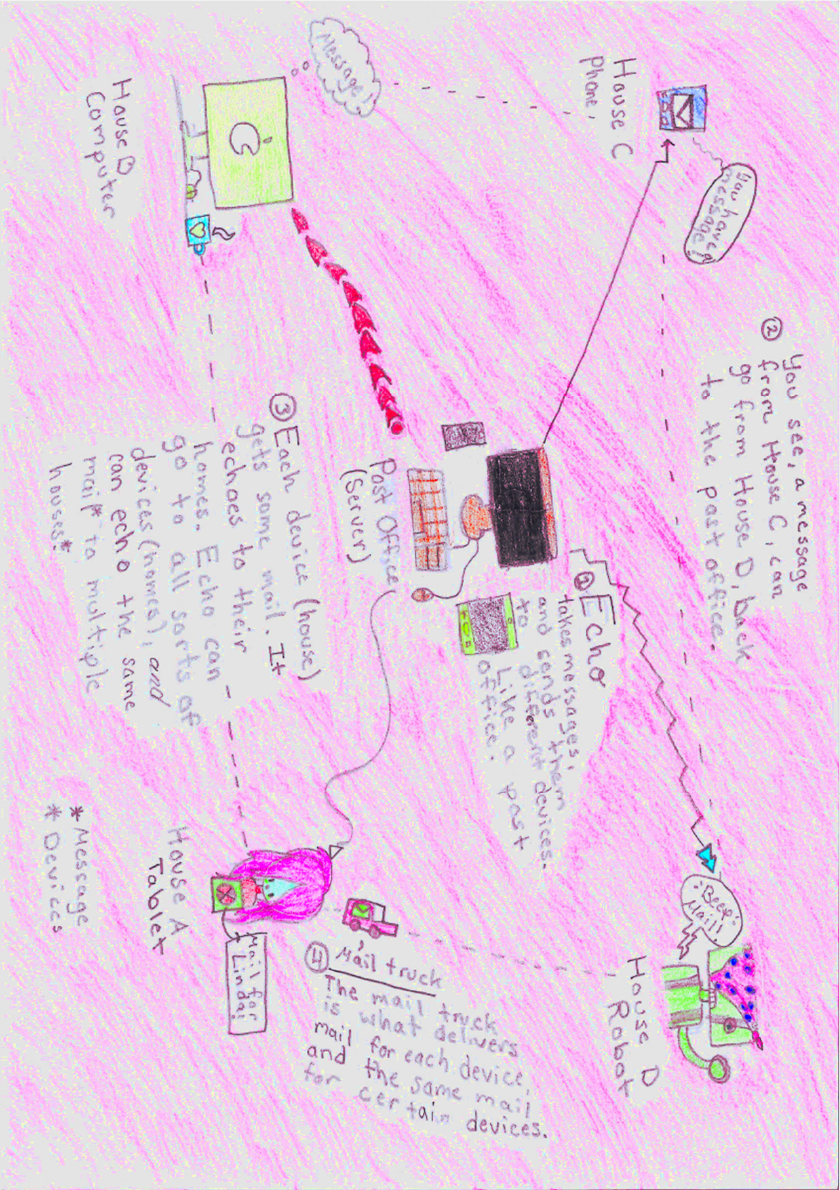 You have a
message!
House C
Phone,
② You see, a message
from House C, can
go from House D, back
to the post office.
"Beep!
Mail!
House D
Robot
Message!
① Echo
takes messages,
and sends them
to different devices.
Like a post
office.
Post Office
(Server)
④ Mail truck
The mail truck
is what delivers
mail for each device,
and the same mail
for certain devices.
House B
Computer
③ Each device (house)
gets some mail. It
echoes to their
homes. Echo can
go to all sorts of
devices (homes), and
can echo the same
mail* to multiple
houses.*
Mail for
Linda!
House A
Tablet
*Message
* Devices